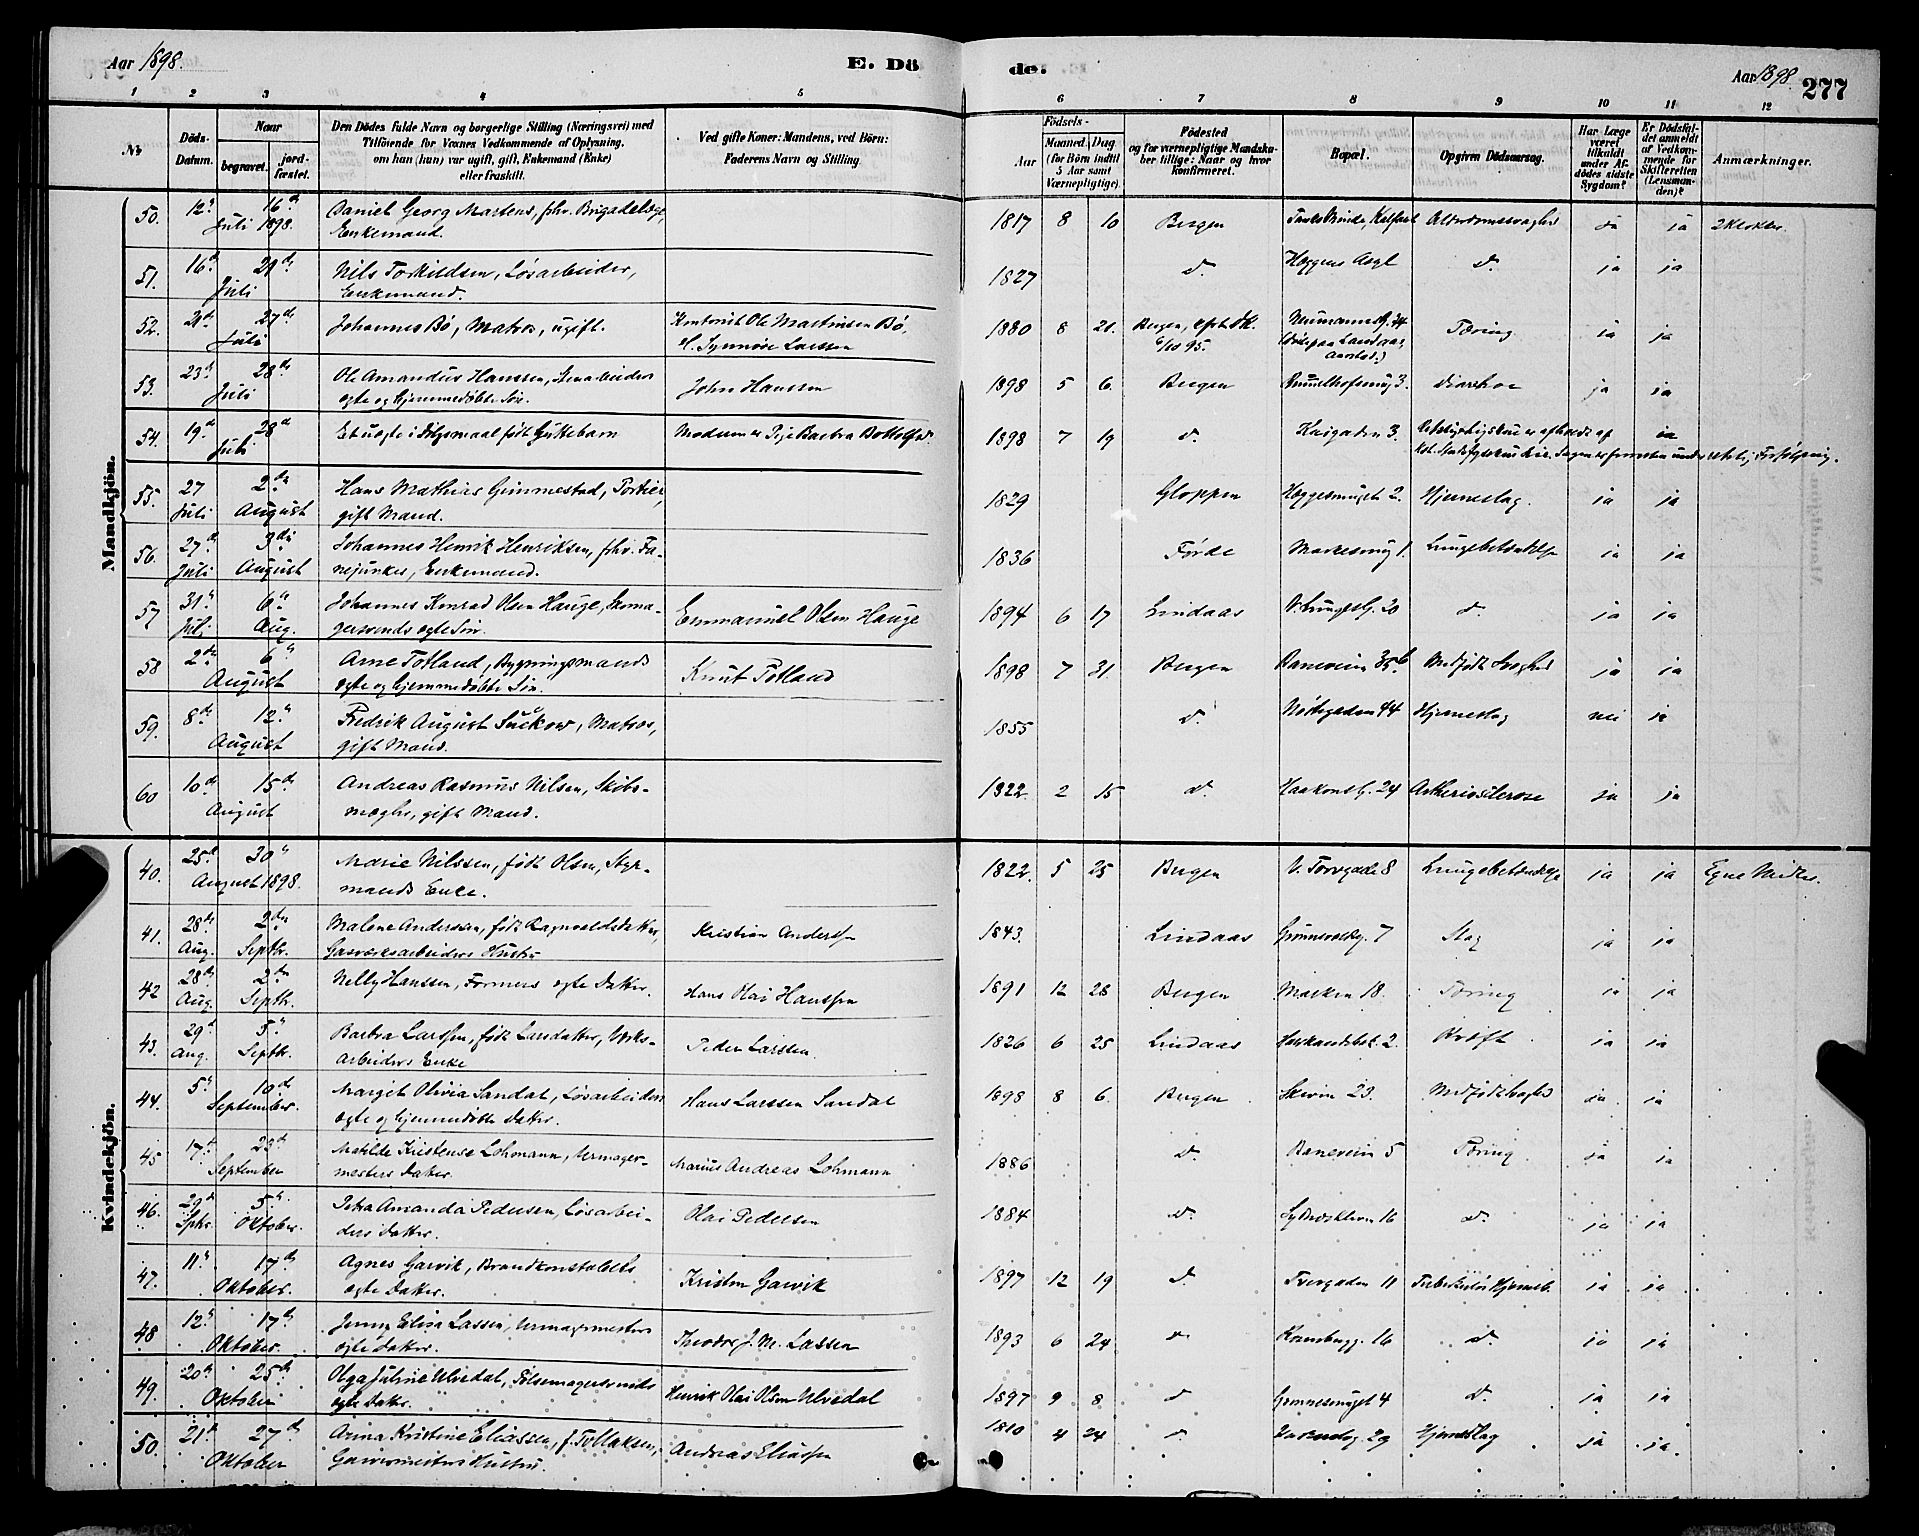 Aar 1898. E. Dö de. Aar 1898. 277
1 2 3 4 5 6 7 8 9 10 11 12
No. Döds-Datum. Naar begravet. jordfæstet. Den Dödes fulde Navn og borgerlige Stilling (Næringsvei) med Tilföiende for Voxnes Vedkommende af Oplysning, om han (hun) var ugift, gift, Enkemand (Enke) eller fraskilt. Ved gifte Koner: Mandens, ved Börn: Faderens Navn og Stilling. Födsels- Aar Maaned. Dag (for Börn indtil 5 Aar samt Værnepligtige). Födested og for værnepligtige Mandskaber tillige: Naar og hvor konfirmeret. Bopæl. Opgiven Dödsaarsag. Har Læge været tilkaldt under Afdödes sidste Sygdom? Er Dödsfaldet anmeldt af Vedkommende for Skifteretten (Lensmanden)? Anmærkninger.
Mandkjön.
50. 12te 16de Juli 1898. Daniel Georg Martens, fhv. Brigadelæge, Enkemand. 1817 8 10 Bergen Kalfaret Alderdomssvaghed ja ja 2 Klokker.
51. 16de 21de Juli Nils Torkildsen, Løsarbeider, Enkemand. 1827 d. ja ja
52. 21de 27de Juli Johannes Bø, Matros, ugift. Kontorist Ole Martinsen Bø, H. Synnöve Larssen 1880 8 21. Bergen, 6/10 95. Neumannsg. 34 Tæring ja ja
53. 23de 28de Juli Ole Amandus Hanssen, Stenarbeiders ægte og hjemmedøbte Søn. John Hanssen 1898 5 6. Bergen 3. Diarrhoe ja ja
54. 19de 28de Juli Et uægte i Dølgsmaal født Guttebarn Moderen er Botolfsd. 1898 7 19 d. 3. ja
55. 27 Juli 2den August Hans Mathias Gimmestad, Portier, gift Mand. 1829 Gloppen Heggesmuget 2. Hjerneslag. ja ja
56. 27de Juli 3die August Johannes Henrik Henriksen, fhv. Fanejunker, Enkemand. 1836 Førde Markesmug 1. Lungebetændelse ja ja
57 31te Juli 6te Aug. Johannes Konrad Olsen Hauge, Skomagersvends ægte Søn. Emmanuel Olsen Hauge 1894 6 17 Lindaas 20 d. ja ja
58 2den 6te August Arne Totland, Bygningsmands ægte og hjemmedøbte Søn. Knut Totland 1898 7 31. Bergen Baneveien 35b Medfødt Svaghed ja ja
59. 8de 12te August Fredrik August Suckow, Matros, gift Mand. 1855 d. Nøstegaden 44 Hjerneslag nei ja
60 10de 15de August Andreas Rasmus Nilsen, Skibsmægler, gift Mand. 1822 2 15 d. Haakonsg. 24 Artheriosclerose ja ja
Kvindekjön.
40. 25de 30te August 1898. Marie Nilssen, født Olsen, Styrmands Enke. 1822. 5 25 Bergen V. Torvgade 8 Lungebetændelse ja ja Egne Midler.
41. 28de Aug. 2den Septbr. Malene Anderssen, født Ragnvaldsdatter, Gasværksarbeiders Hustru Kristian Andersen 1843. Lindaas 7 Slag ja ja
42 28de Aug. 2den Septbr. Nelly Hanssen, Formers ægte Datter. Hans Olai Hanssen 1891 12 28 Bergen Marken 18. Tæring ja ja
43. 29de Aug. 5te Septbr. Barbra Larssen, født Larsdatter, Værksarbeiders Enke Peder Larssen. 1826 6 25 Lindaas 2. Kræft ja ja
44. 5te 10de September. Margit Olivia Sandal, Løsarbeiders ægte og hjemmedøbte Datter. Hans Larssen Sandal 1898 8 6. Bergen Skivien 23. Medfødt Svaghed ja ja
45 17de 23de September Matilde Kristense Lohmann, Urmagermesters Datter. Marius Andreas Lohmann 1886 d. Baneveien 5 Tæring. ja ja
46. 29de Sptbr. 5te Oktober. Petra Amanda Pedersen, Løsarbeiders Datter. Olai Pedersen 1884 d. 16 d. ja ja
47. 11te 17de Oktober. Agnes Garvik, Brandkonstabels ægte Datter. Kristen Garvik 1897 12 19 d. Tvergaden 11 ja ja
48 12te 17de Oktober. Jenny Elisa Lassen, Urmagermesters ægte Datter. Theodor J. M. Lassen 1893 6 24 d. 16 d. ja ja
49. 20de 25de Oktober Olga Julvine Ulvedal, Pølsemagersvends ægte Datter. Henrik Olai Olsen Ulvedal 1897 9 8 d Grønnesmuget 4 d. ja ja
50. 21de 27de Oktober Anna Kristine Eliassen, f. Tollaksen, Garvermesters Hustru. Andreas Eliassen 1810 4 24 d 29 Hjerneslag ja ja.